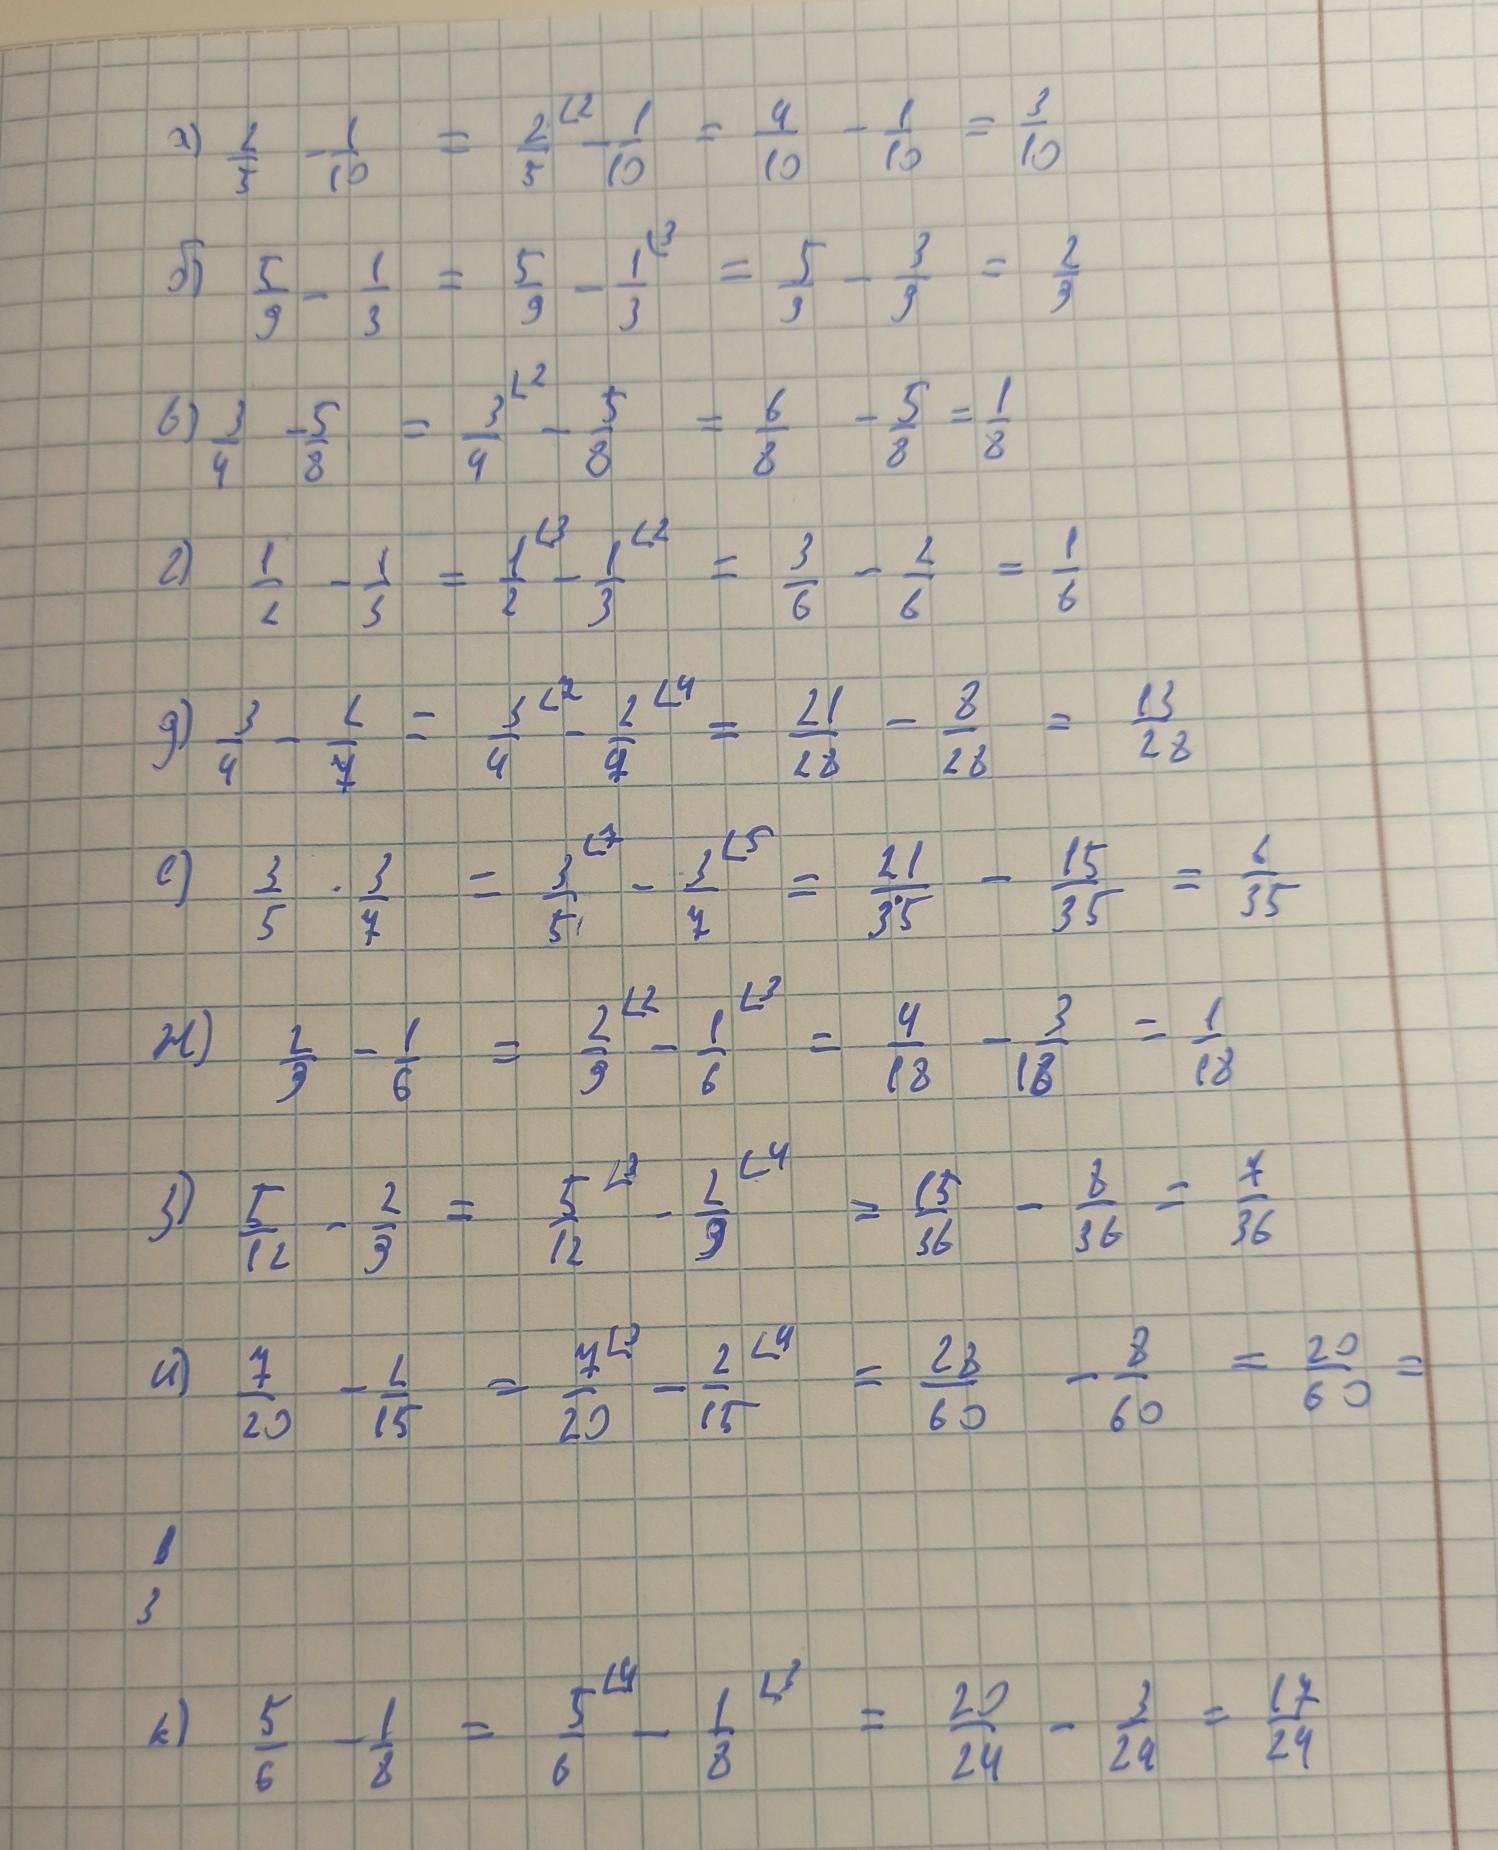 а) 2/5 - 1/10 = 2/5 ∟2 - 1/10 = 4/10 - 1/10 = 3/10
б) 5/9 - 1/3 = 5/9 - 1/3 ∟3 = 5/9 - 3/9 = 2/9
в) 3/4 - 5/8 = 3/4 ∟2 - 5/8 = 6/8 - 5/8 = 1/8
г) 1/2 - 1/3 = 1/2 ∟3 - 1/3 ∟2 = 3/6 - 2/6 = 1/6
д) 3/4 - 2/7 = 3/4 ∟7 - 2/7 ∟4 = 21/28 - 8/28 = 13/28
е) 3/5 - 3/7 = 3/5 ∟7 - 3/7 ∟5 = 21/35 - 15/35 = 6/35
ж) 2/9 - 1/6 = 2/9 ∟2 - 1/6 ∟3 = 4/18 - 3/18 = 1/18
з) 5/12 - 2/9 = 5/12 ∟3 - 2/9 ∟4 = 15/36 - 8/36 = 7/36
и) 7/20 - 2/15 = 7/20 ∟3 - 2/15 ∟4 = 28/60 - 8/60 = 20/60 =
1/3
к) 5/6 - 1/8 = 5/6 ∟4 - 1/8 ∟3 = 20/24 - 3/24 = 17/24